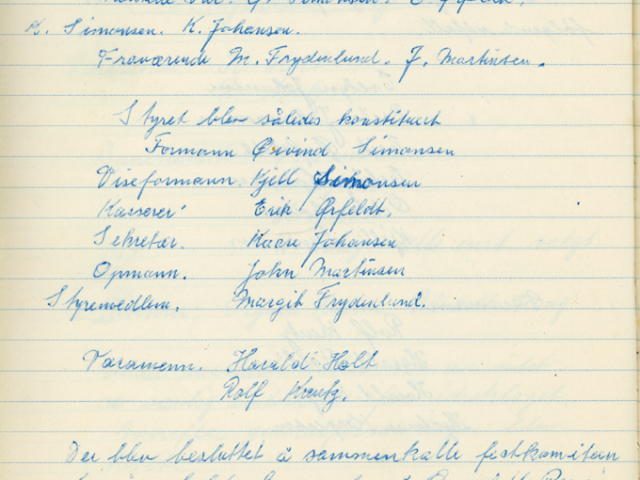 K. Simonsen. K. Johansen.
Fraværende M. Frydenlund. J. Martinsen.
Styret blev således konstituert
Formann Øivind Simonsen
Viseformann Kjell Simonsen
Kasserer Erik Ørfeldt.
Sekretær. Kaare Johansen
Opmann. John Martinsen
Styremedlem. Margit Frydenlund.
Varamenn. Harald Holt
Rolf Kreutz.
Der blev besluttet å sammenkalle festkomiteen